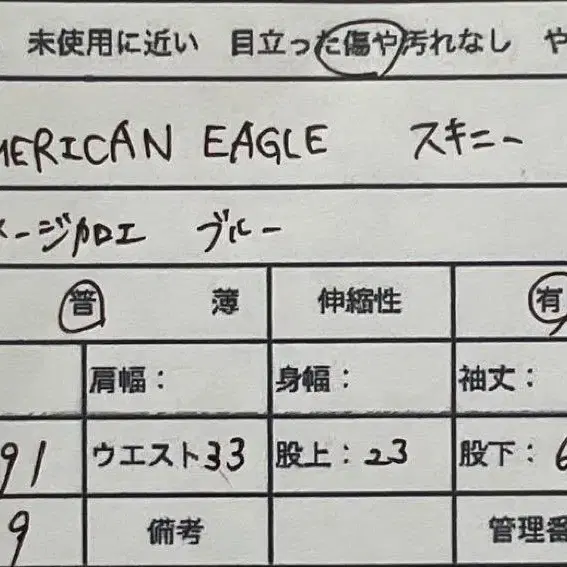 未使用に近い 目立った傷や汚れなし や
MERICAN EAGLE スキニー
メージ加工 ブルー
普 薄 伸縮性 有
肩幅: 身幅: 袖丈:
91 ウエスト33 股上:23 股下:6
9 備考 管理番